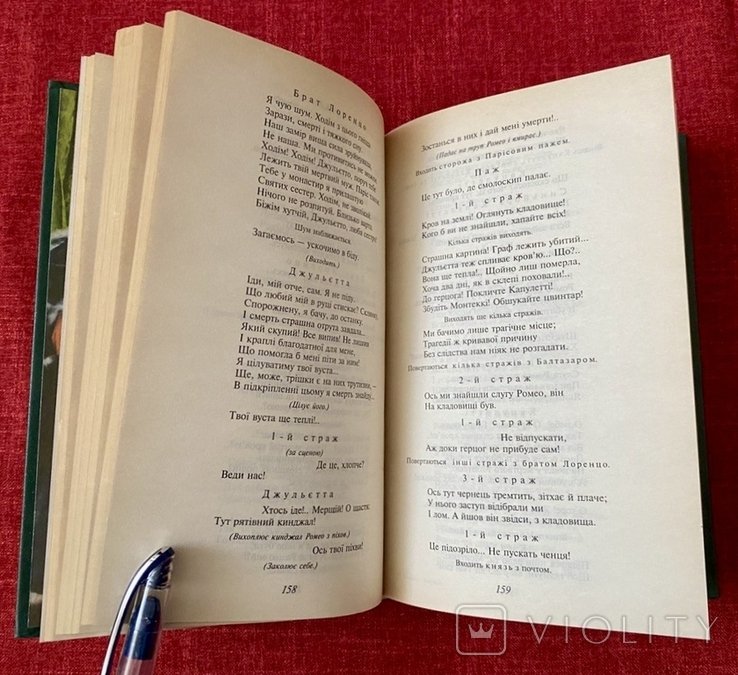 Брат Лоренцо
Я чую шум. Ходім з цього гнізда
Зарази, смерті і тяжкого сну.
Наш замір вища сила зруйнувала,
Не наша. Ми противитись не можем
Ходім! Ходім! Джульєтто, поруч тебе
Лежить твій мертвий муж. Парис також.
Тебе у монастир я прилаштую
Святих сестер. Ходім, не зволікай
Нічого не розпитуй. Близько варта,
Біжім хутчій, Джульєтто, люба сестро!
Шум наближається
Загаємось — ускочимо в біду.
(Виходить.)
Джульєтта
Іди, мій отче, сам. Я не піду.
Що любий мій в руці стискає? Склянку,
Спорожнену, я бачу, до останку.
І смерть страшна отрута завдала...
Який скупий! Все випив! Не лишив
І краплі благодатної для мене,
Що помогла б мені піти за ним!
Я цілуватиму твої вуста...
Ще, може, трішки є на них трутизни, —
В підкріпленні цьому я смерть знайду...
(Цілує його).
Твої вуста ще теплі!..
1-й страж
(за сценою)
Де це, хлопче?
Веди нас!
Джульєтта
Хтось іде!.. Мерщій! О щастя:
Тут рятівний кинджал!
(Вихоплює кинджал Ромео з піхов.)
Ось твої піхви!
(Заколює себе.)
158
Зостанься в них і дай мені умерти!..
(Падає на труп Ромео і вмирає.)
Входить сторожа з Парісовим пажем.
Паж
Це тут було, де смолоскип палає.
1-й страж
Кров на землі! Оглянуть кладовище!
Кого б ви не знайшли, хапайте всіх!
Кілька стражів виходять.
Страшна картина! Граф лежить убитий...
Джульєтта теж спливає кров'ю... Що?..
Вона ще тепла!.. Щойно лиш померла,
Хоча два дні, як в склепі поховали!..
До герцога! Покличте Капулетті!
Збудіть Монтеккі! Обшукайте цвинтар!
Виходять ще кілька стражів.
Ми бачимо лише трагічне місце;
Трагедії ж кривавої причину
Без слідства нам ніяк не розгадати..
Повертаються кілька стражів з Балтазаром.
2-й страж
Ось ми знайшли слугу Ромео, він
На кладовищі був.
1-й страж
Не відпускати,
Аж доки герцог не прибуде сам!
Повертаються інші стражі з братом Лоренцо.
3-й страж
Ось тут чернець тремтить, зітхає й плаче;
У нього заступ відібрали ми
І лом. А йшов він звідси, з кладовища.
1-й страж
Це підозріло... Не пускать ченця!
Входить князь з почтом.
159
VIOLITY